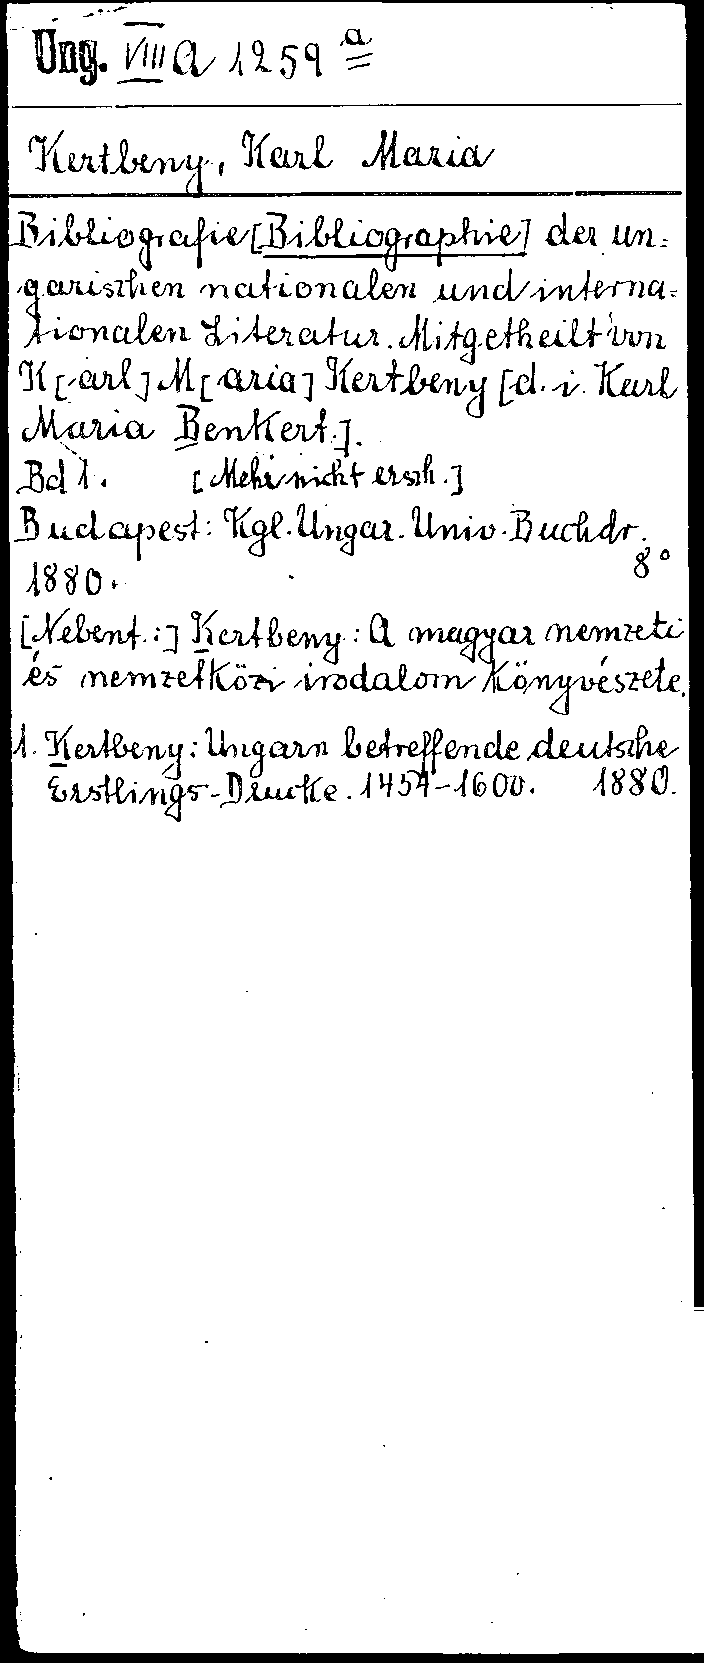 Ung. VIII A 1259 a
Kertbeny, Karl Maria
Bibliografie [Bibliographie] der un-
garischen nationalen und interna-
tionalen Literatur. Mitgetheilt von
K[arl] M[aria] Kertbeny [d. i. Karl
Maria Benkert.].
Bd 1. [Mehr nicht ersch.]
Budapest: Kgl. Ungar. Univ. Buchdr.
1880. 8°
[Nebent.:] Kertbeny: A magyar nemzeti
és nemzetközi irodalom könyvészete.
1. Kertbeny: Ungarn betreffende deutsche
Erstlings-Drucke. 1454-1600. 1880.